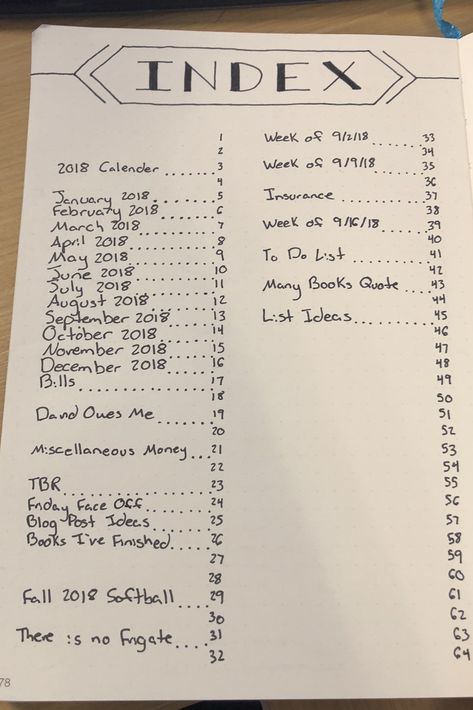 INDEX
1
2
2018 Calender ....... 3
4
January 2018 ....... 5
February 2018 ....... 6
March 2018 ....... 7
April 2018 ....... 8
May 2018 ....... 9
June 2018 ....... 10
July 2018 ....... 11
August 2018 ....... 12
September 2018 ....... 13
October 2018 ....... 14
November 2018 ....... 15
December 2018 ....... 16
Bills ....... 17
18
David Owes Me ....... 19
20
Miscellaneous Money ... 21
22
TBR ....... 23
Friday Face Off ....... 24
Blog Post Ideas ....... 25
Books I've Finished ..... 26
27
28
Fall 2018 Softball .... 29
30
There is no Frigate .... 31
32
Week of 9/2/18 ..... 33
34
Week of 9/9/18 ..... 35
36
Insurance ....... 37
38
Week of 9/16/18 ..... 39
40
To Do List ....... 41
42
Many Books Quote ... 43
44
List Ideas ....... 45
46
47
48
49
50
51
52
53
54
55
56
57
58
59
60
61
62
63
64
78